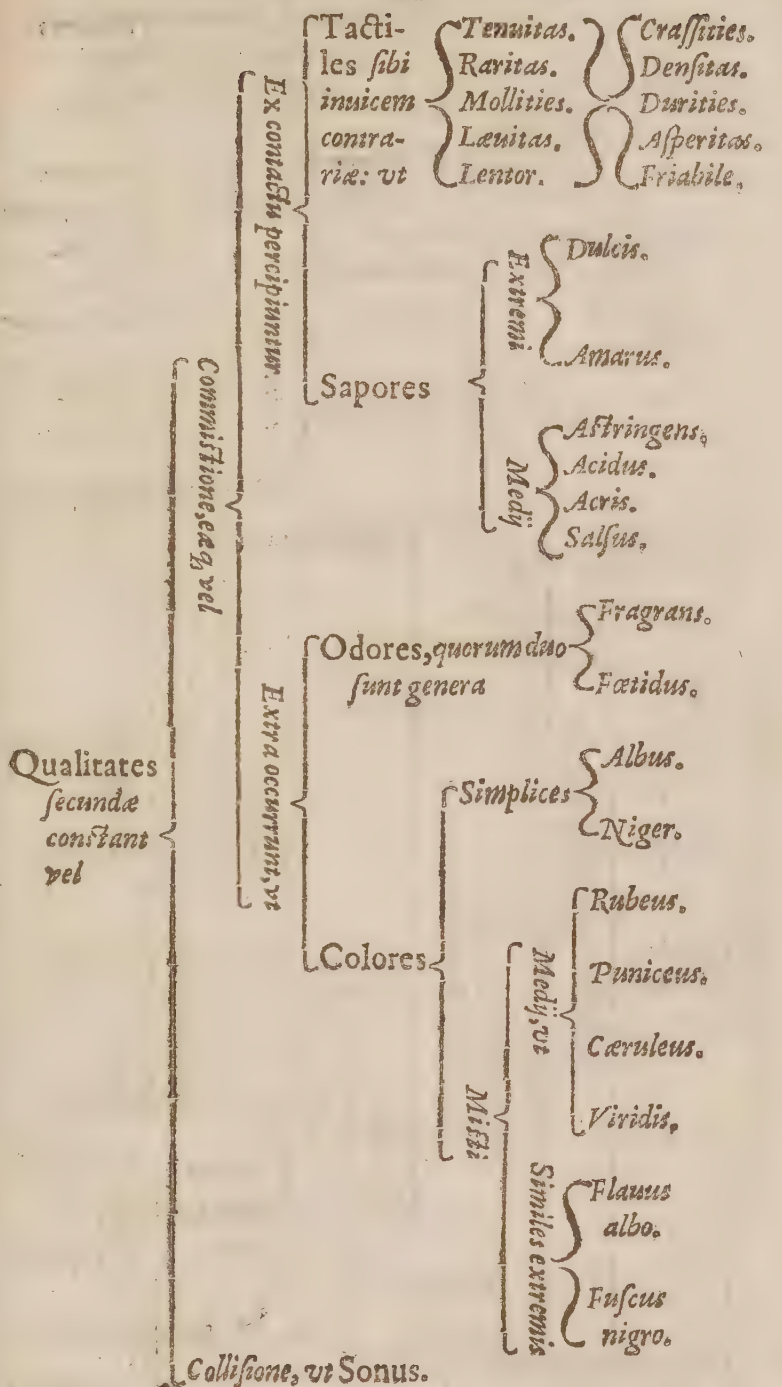 Qualitates
secundæ
constant
vel
Commistione, eæq, vel
Ex contactu percipiuntur.
Tacti-
les sibi
inuicem
contra-
riæ: vt
Tenuitas.
Raritas.
Mollities.
Læuitas.
Lentor.
Crassities.
Densitas.
Durities.
Asperitas.
Friabile.
Sapores
Extremi
Dulcis.
Amarus.
Medij
Astringens.
Acidus.
Acris.
Salsus.
Extra occurrunt, vt
Odores, quorum duo
sunt genera
Fragrans.
Fœtidus.
Colores
Simplices
Albus.
Niger.
Misti
Medij, vt
Rubeus.
Puniceus.
Cæruleus.
Viridis.
Similes extremis
Flauus
albo.
Fuscus
nigro.
Collisione, vt Sonus.